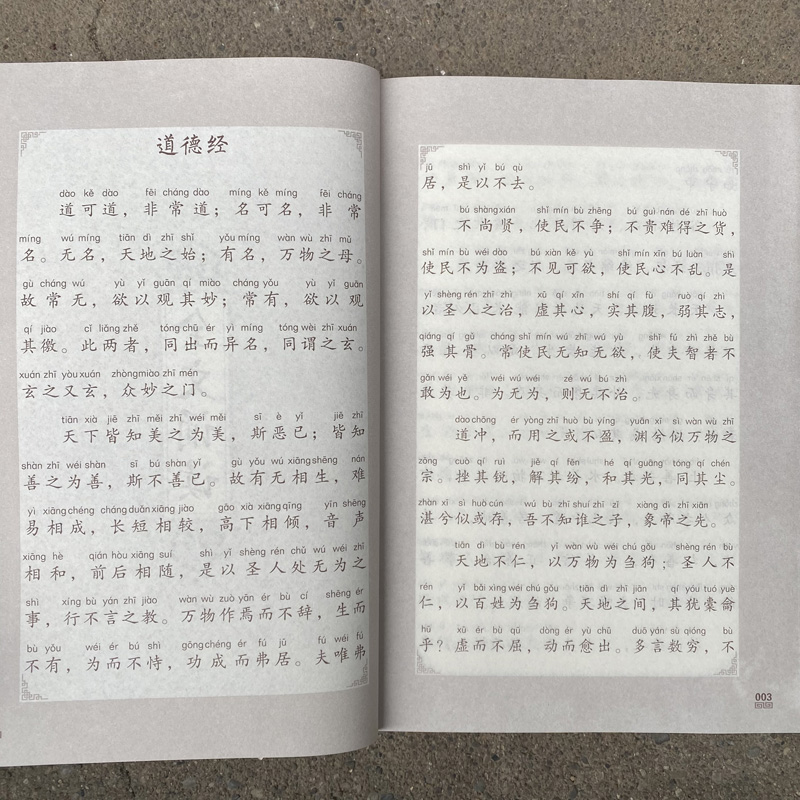 道德经
dào kě dào fēi cháng dào míng kě míng fēi cháng
道可道，非常道；名可名，非常
míng wú míng tiān dì zhī shǐ yǒu míng wàn wù zhī mǔ
名。无名，天地之始；有名，万物之母。
gù cháng wú yù yǐ guān qí miào cháng yǒu yù yǐ guān
故常无，欲以观其妙；常有，欲以观
qí jiào cǐ liǎng zhě tóng chū ér yì míng tóng wèi zhī xuán
其徼。此两者，同出而异名，同谓之玄。
xuán zhī yòu xuán zhòng miào zhī mén
玄之又玄，众妙之门。
tiān xià jiē zhī měi zhī wéi měi sī è yǐ jiē zhī
天下皆知美之为美，斯恶已；皆知
shàn zhī wéi shàn sī bú shàn yǐ gù yǒu wú xiāng shēng nán
善之为善，斯不善已。故有无相生，难
yì xiāng chéng cháng duǎn xiāng jiào gāo xià xiāng qīng yīn shēng
易相成，长短相较，高下相倾，音声
xiāng hè qián hòu xiāng suí shì yǐ shèng rén chǔ wú wéi zhī
相和，前后相随，是以圣人处无为之
shì xíng bù yán zhī jiào wàn wù zuò yān ér bù cí shēng ér
事，行不言之教。万物作焉而不辞，生而
bù yǒu wéi ér bú shì gōng chéng ér fú jū fú wéi fú
不有，为而不恃，功成而弗居。夫唯弗
jū shì yǐ bú qù
居，是以不去。
bú shàng xián shǐ mín bù zhēng bú guì nán dé zhī huò
不尚贤，使民不争；不贵难得之货，
shǐ mín bù wéi dào bú xiàn kě yù shǐ mín xīn bú luàn shì
使民不为盗；不见可欲，使民心不乱。是
yǐ shèng rén zhī zhì xū qí xīn shí qí fù ruò qí zhì
以圣人之治，虚其心，实其腹，弱其志，
qiáng qí gǔ cháng shǐ mín wú zhī wú yù shǐ fú zhì zhě bù
强其骨。常使民无知无欲，使夫智者不
gǎn wéi yě wéi wú wéi zé wú bú zhì
敢为也。为无为，则无不治。
dào chōng ér yòng zhī huò bù yíng yuān xī sì wàn wù zhī
道冲，而用之或不盈，渊兮似万物之
zōng cuò qí ruì jiě qí fēn hé qí guāng tóng qí chén
宗。挫其锐，解其纷，和其光，同其尘。
zhàn xī sì huò cún wú bù zhī shuí zhī zǐ xiàng dì zhī xiān
湛兮似或存，吾不知谁之子，象帝之先。
tiān dì bù rén yǐ wàn wù wéi chú gǒu shèng rén bù
天地不仁，以万物为刍狗；圣人不
rén yǐ bǎi xìng wéi chú gǒu tiān dì zhī jiān qí yóu tuó yuè
仁，以百姓为刍狗。天地之间，其犹橐龠
hū xū ér bù qū dòng ér yù chū duō yán sù qióng bù
乎？虚而不屈，动而愈出。多言数穷，不
003